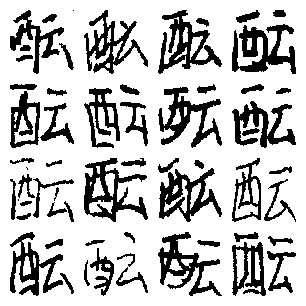 酝酝酝酝
酝酝酝酝
酝酝酝酝
酝酝酝酝